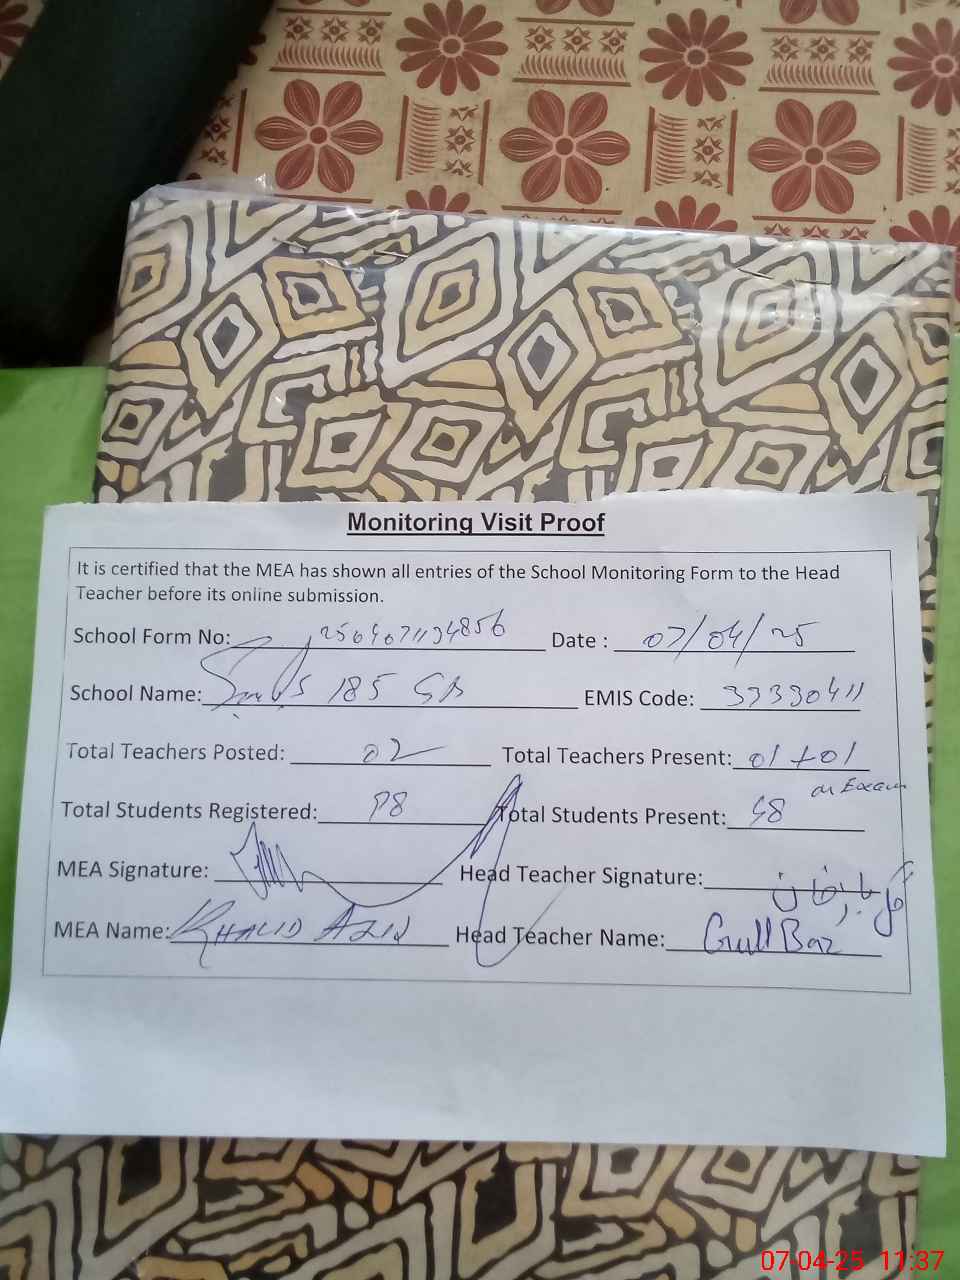 Monitoring Visit Proof
It is certified that the MEA has shown all entries of the School Monitoring Form to the Head
Teacher before its online submission.
School Form No: Date : 07/04/25
School Name: 185 EMIS Code: 33330411
Total Teachers Posted: 02 Total Teachers Present: 01 + 01
on Exam
Total Students Registered: 98 Total Students Present: 48
MEA Signature: Head Teacher Signature:
MEA Name: KHALID AZIZ Head Teacher Name: Gull Baz
07-04-25 11:37